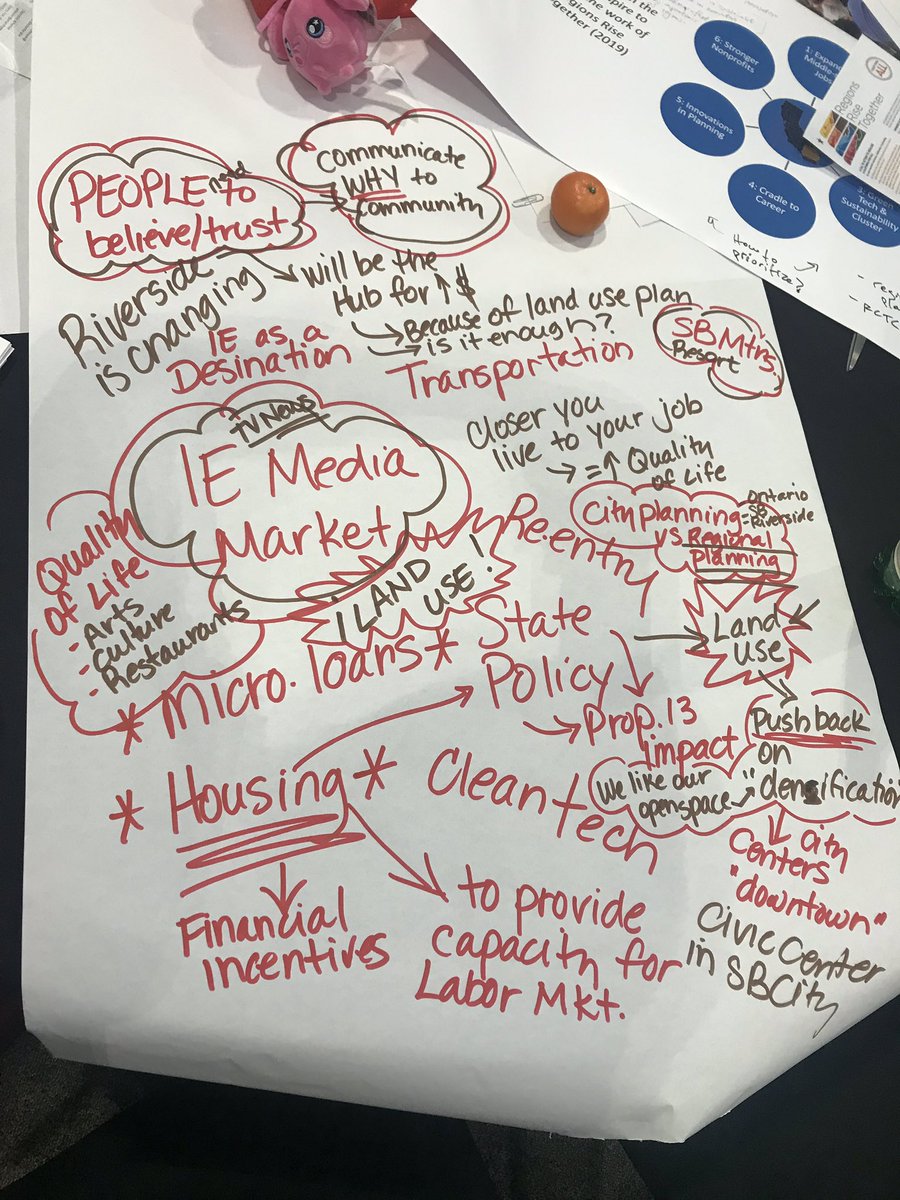 pire to
the work of
egions Rise
ogether (2019)
6: Stronger
Nonprofits
1: Expan
Middle-
Jobs
5: Innovations
in Planning
4: Cradle to
Career
3: Green
Tech &
Sustainability
Cluster
Regions
Rise
Together
ALL
How to
prioritize?
PEOPLE need to
believe/trust
communicate
WHY to
community
Riverside
is changing
will be the
Hub for ↑ $
→ Because of land use plan
→ is it enough?
IE as a
Desination
Transportation
SB Mtns.
Resort
TV News
IE Media
Market
closer you
live to your job
→ = ↑ Quality
of Life
City planning
vs Regional
planning
= Ontario
SB
Riverside
Quality
of Life
- Arts
- Culture
- Restaurants
Re-entry
! LAND
USE !
Land
use
* Micro-loans *
State
Policy
→ Prop. 13
impact
Pushback
on
"densification
We like our
openspace
* Housing *
Clean Tech
City
Centers
"downtown"
Civic Center
in SBCity
Financial
incentives
to provide
capacity for
Labor Mkt.